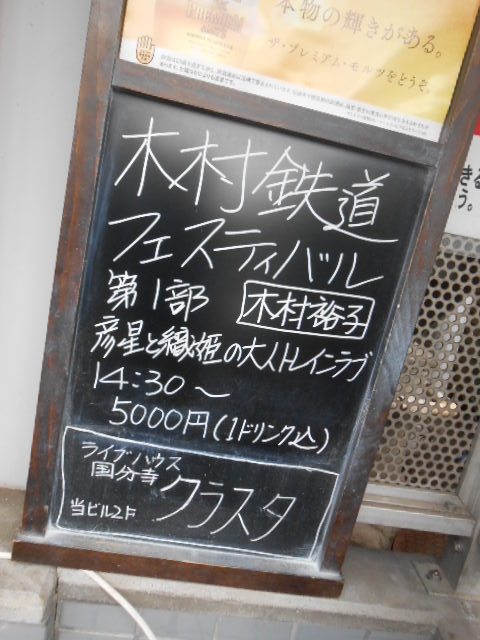 本物の輝きがある。
ザ・プレミアム・モルツをどうぞ。
木村鉄道
フェスティバル
第1部
木村裕子
彦星と織姫の大人トレインラブ
14:30〜
5000円(1ドリンク込)
ライブハウス
国分寺
クラスタ
当ビル2F
きる
う。